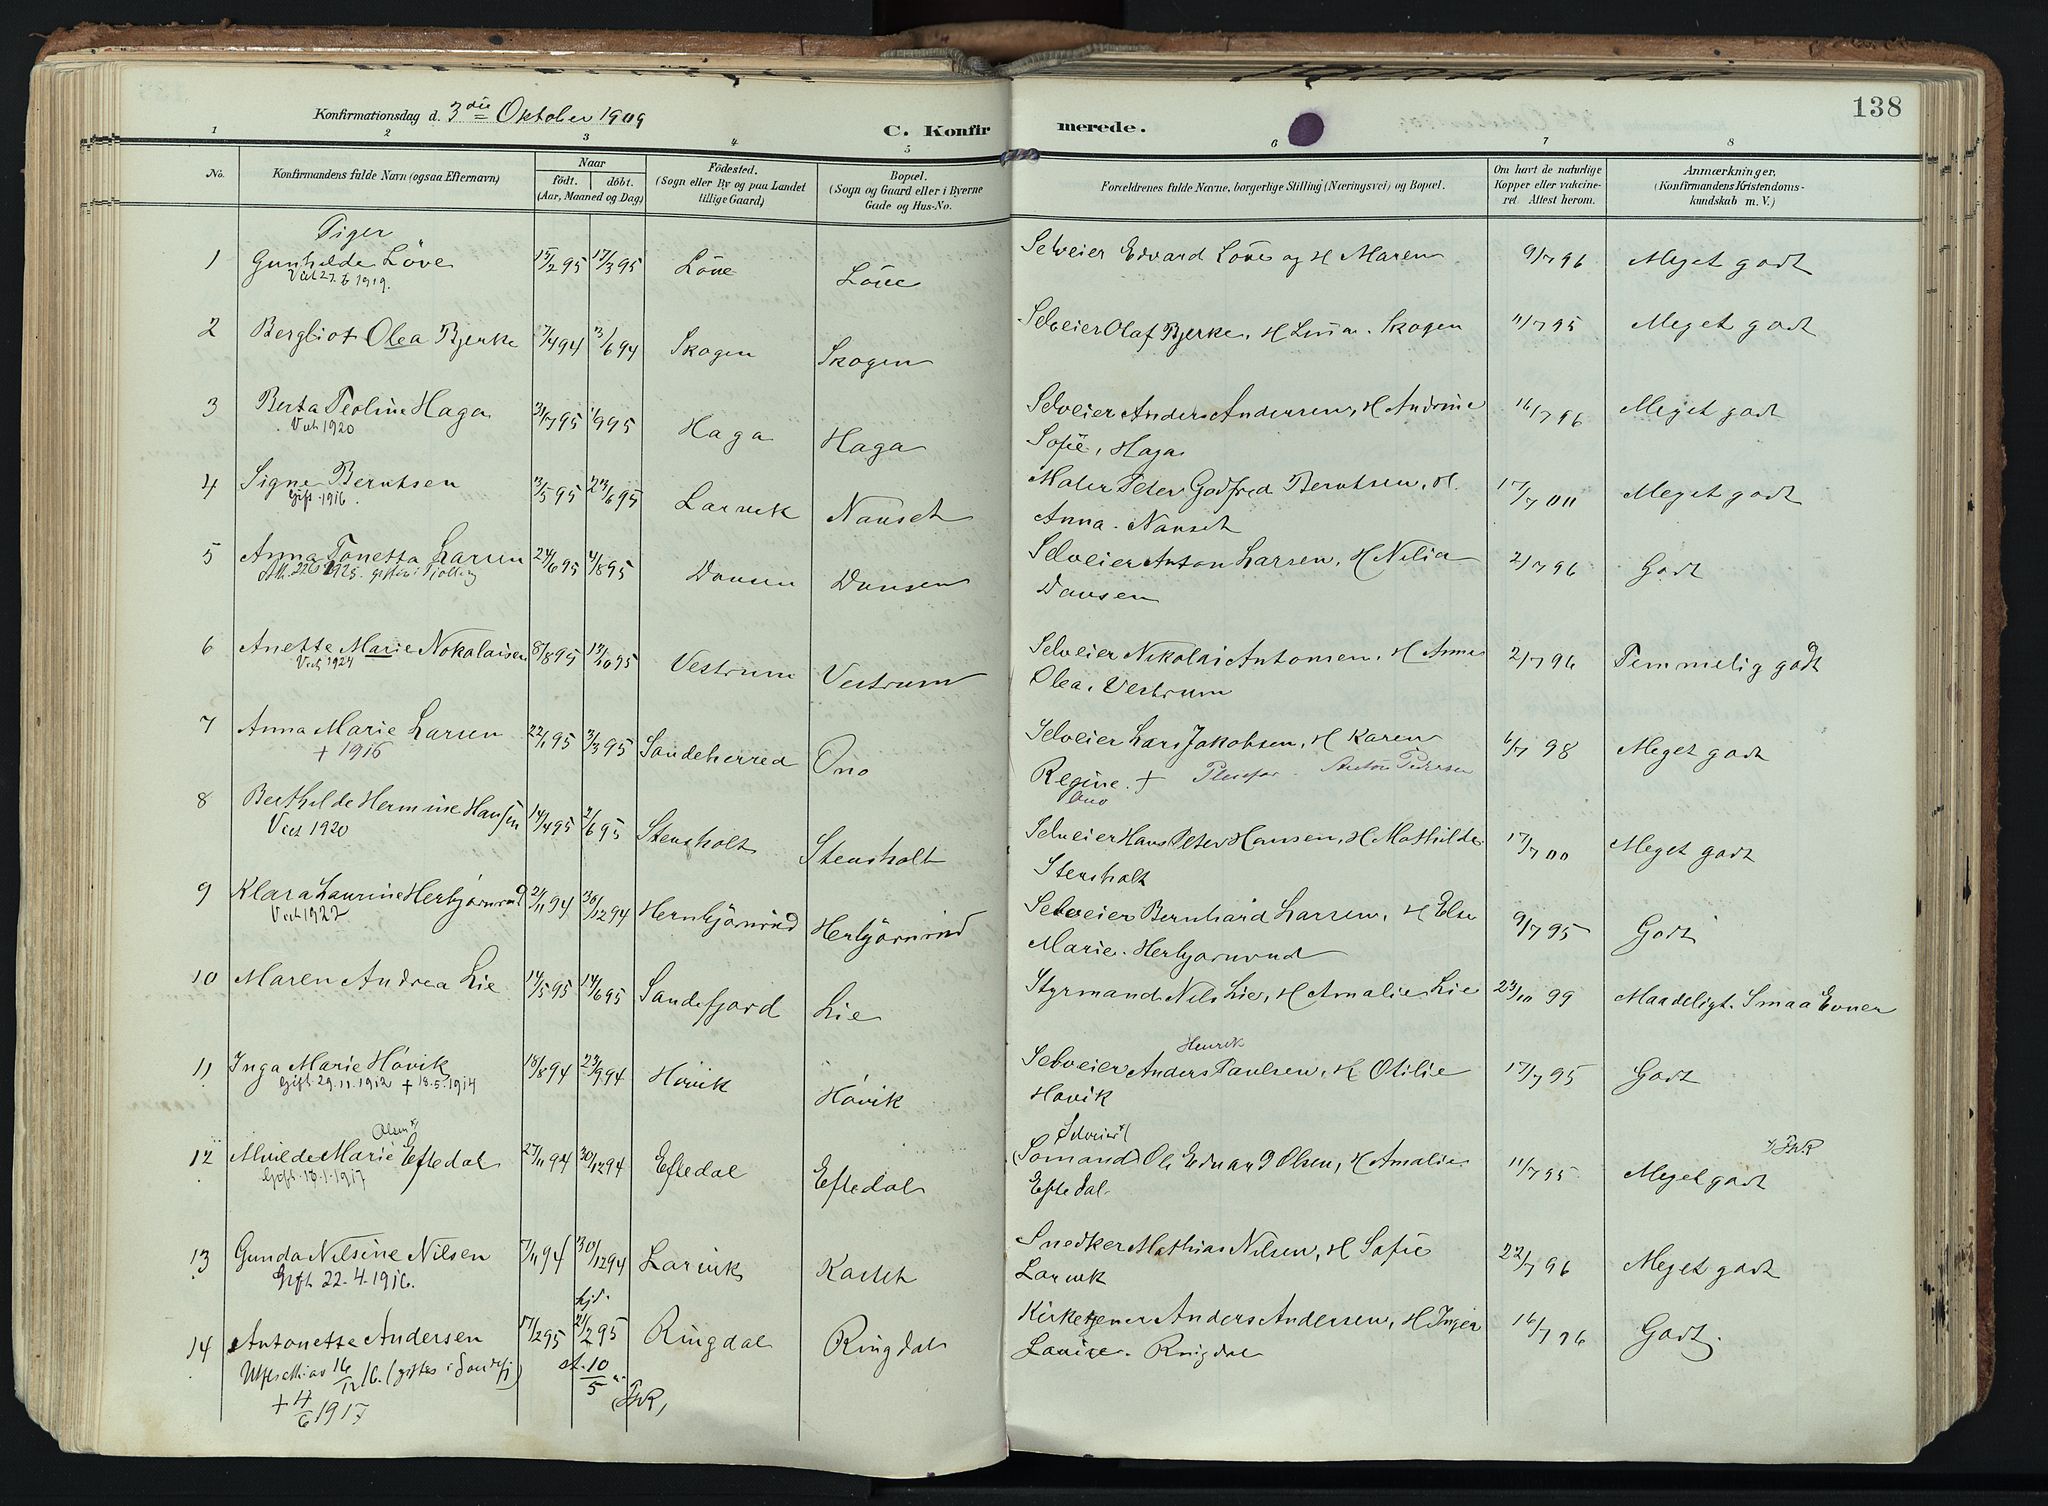 138
Konfirmationsdag d. 3die Oktober 1909
C. Konfirmerede.
1 2 3 4 5 6 7 8
No.
Konfirmandens fulde Navn (ogsaa Efternavn)
Naar
födt. döbt.
(Aar, Maaned og Dag)
Födested.
(Sogn eller By og paa Landet
tillige Gaard)
Bopæl.
(Sogn og Gaard eller i Byerne
Gade og Hus-No.
Forældrenes fulde Navne, borgerlige Stilling (Næringsvei) og Bopæl.
Om havt de naturlige
Kopper eller vakcine-
ret Attest herom.
Anmærkninger,
(Konfirmandens Kristendoms-
kundskab m. V.)
Piger
1 Gunhilde Löve 15/2 95 17/3 95 Löve Löve Selveier Edvard Löve og H Maren 9/7 96 Meget godt
Viet 27.6 1919.
2 Bergliot Olea Bjerke 7/4 94 3/6 94 Skogen Skogen Selveier Olaf Bjerke, H Lina. Skogen 11/7 95 Meget godt
3 Berta Teoline Haga 31/7 95 1/9 95 Haga Haga Selveier Anders Andersen, H Andrine 16/7 96 Meget godt
Viet 1920
Sofie, Haga
4 Signe Berntsen 3/5 95 23/6 95 Larvik Nanset Maler Peter Godfred Berntsen, H. 17/7 00 Meget godt
Gift 1916.
Anna. Nanset
5 Anna Tonetta Larsen 24/6 95 4/8 95 Dansen Dansen Selveier Anton Larsen, H Nilia 2/7 96 Godt
1925. giftes i Tjølling
Dansen
6 Anette Marie Nokolaisen 8/8 95 13/10 95 Vestrum Vestrum Selveier Nikolai Antonsen, H Anne 2/7 96 Temmelig godt
Viet 1924
Olea, Vestrum
7 Anna Marie Larsen 22/1 95 3/3 95 Sandeherred Ono Selveier Lars Jakobsen, H Karen 6/7 98 Meget godt
+ 1916
Regine. + Pleiefar. Anton Pedersen
Ono
8 Berthilde Hermine Hansen 14/4 95 2/6 95 Stensholt Stensholt Selveier Hans Peter Hansen, H Mathilde 17/7 00 Meget godt
Viet 1920
Stensholt
9 Klara Laurine Herbjørnrud 24/11 94 30/12 94 Hernbjörnrud Herbjörnrud Selveier Bernhard Larsen, H Else 9/7 95 Godt
Viet 1922
Marie. Herbjørnrud
10 Maren Andrea Lie 14/5 95 14/6 95 Sandefjord Lie Styrmand Nils Lie, H Amalie Lie 23/10 99 Maadeligt. Smaa Evner
11 Inga Marie Hövik 18/8 94 23/9 94 Hövik Hövik Selveier Anders Henrik Paulsen, H Otilie 17/7 95 Godt
Gift 29.11.1912 + 18.5.1914
Hovik
12 Alvilde Marie Olsen x) Eftedal 27/11 94 30/12 94 Eftedal Eftedal Selveier x) (Sömand) Ole Edvard Olsen, H Amalie 11/7 95 Meget godt x) ThR
Gift 18.1.1917
Eftedal
13 Gunda Nilsine Nilsen 7/11 94 30/12 94 Larvik Kastet Snedker Mathias Nilsen, H Sofie 22/7 96 Meget godt
Gift 22.4.1916.
Larvik
14 Antonette Andersen 17/2 95 hjd. 21/2 95 Ringdal Ringdal Kirketjener Anders Andersen, H Inger 16/7 96 Godt.
st. 10/5 (ThR)
Louise. Ringdal
Utfl. att. av 16/12 16. (giftes i Sandefj)
+ 4/6 1917